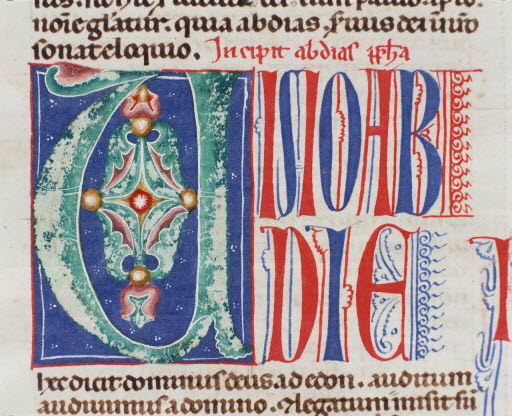 quia abdias, seruus dei in nr̄o
sonat eloquio. Incipit abdias ꝓph̄a
UISIO AB
DIE
hec dicit dominus deus ad edon. auditum
audiuimus a domino. & legatum misit